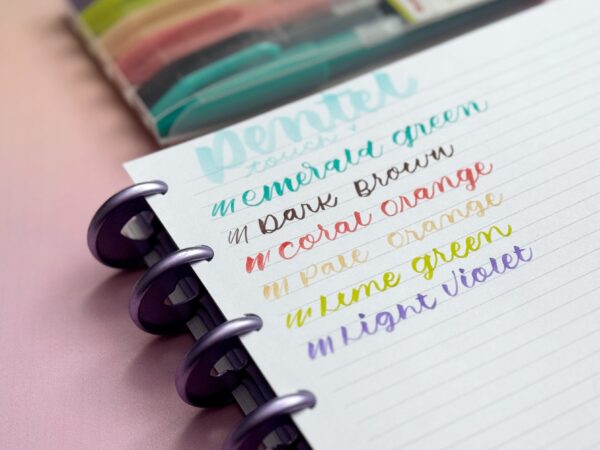 Pentel
touch
Emerald Green
Dark Brown
Coral Orange
Pale Orange
Lime Green
Light Violet